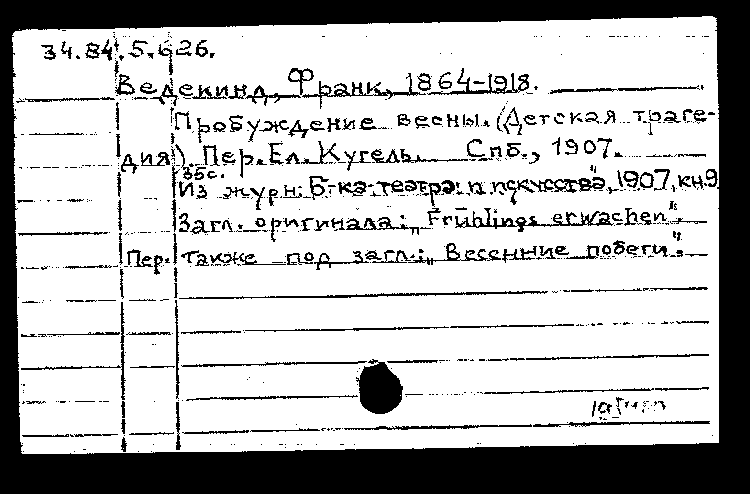 34.84.5.626.
Ведекинд, Франк, 1864-1918.
Пробуждение весны. (Детская траге-
дия). Пер. Ел. Кугель. Спб., 1907.
35с.
Из журн: Б-ка театра и искусства", 1907, кн.9
Загл. оригинала: „Frühlings erwachen".
Пер. также под загл.: „Весенние побеги".